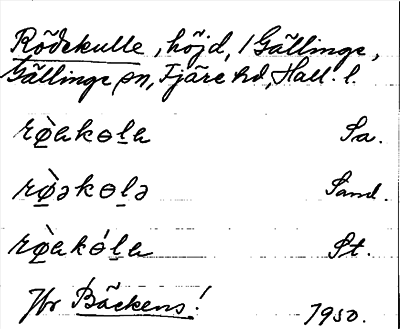 Rödekulle, höjd, 1 Gällinge,
Gällinge sn, Fjäre hd, Hall. l.
rø̀akɵla Sa.
rø̀əkɵlə Sand.
rø̀akɵ́la St.
Jfr Bäckens! 1950.